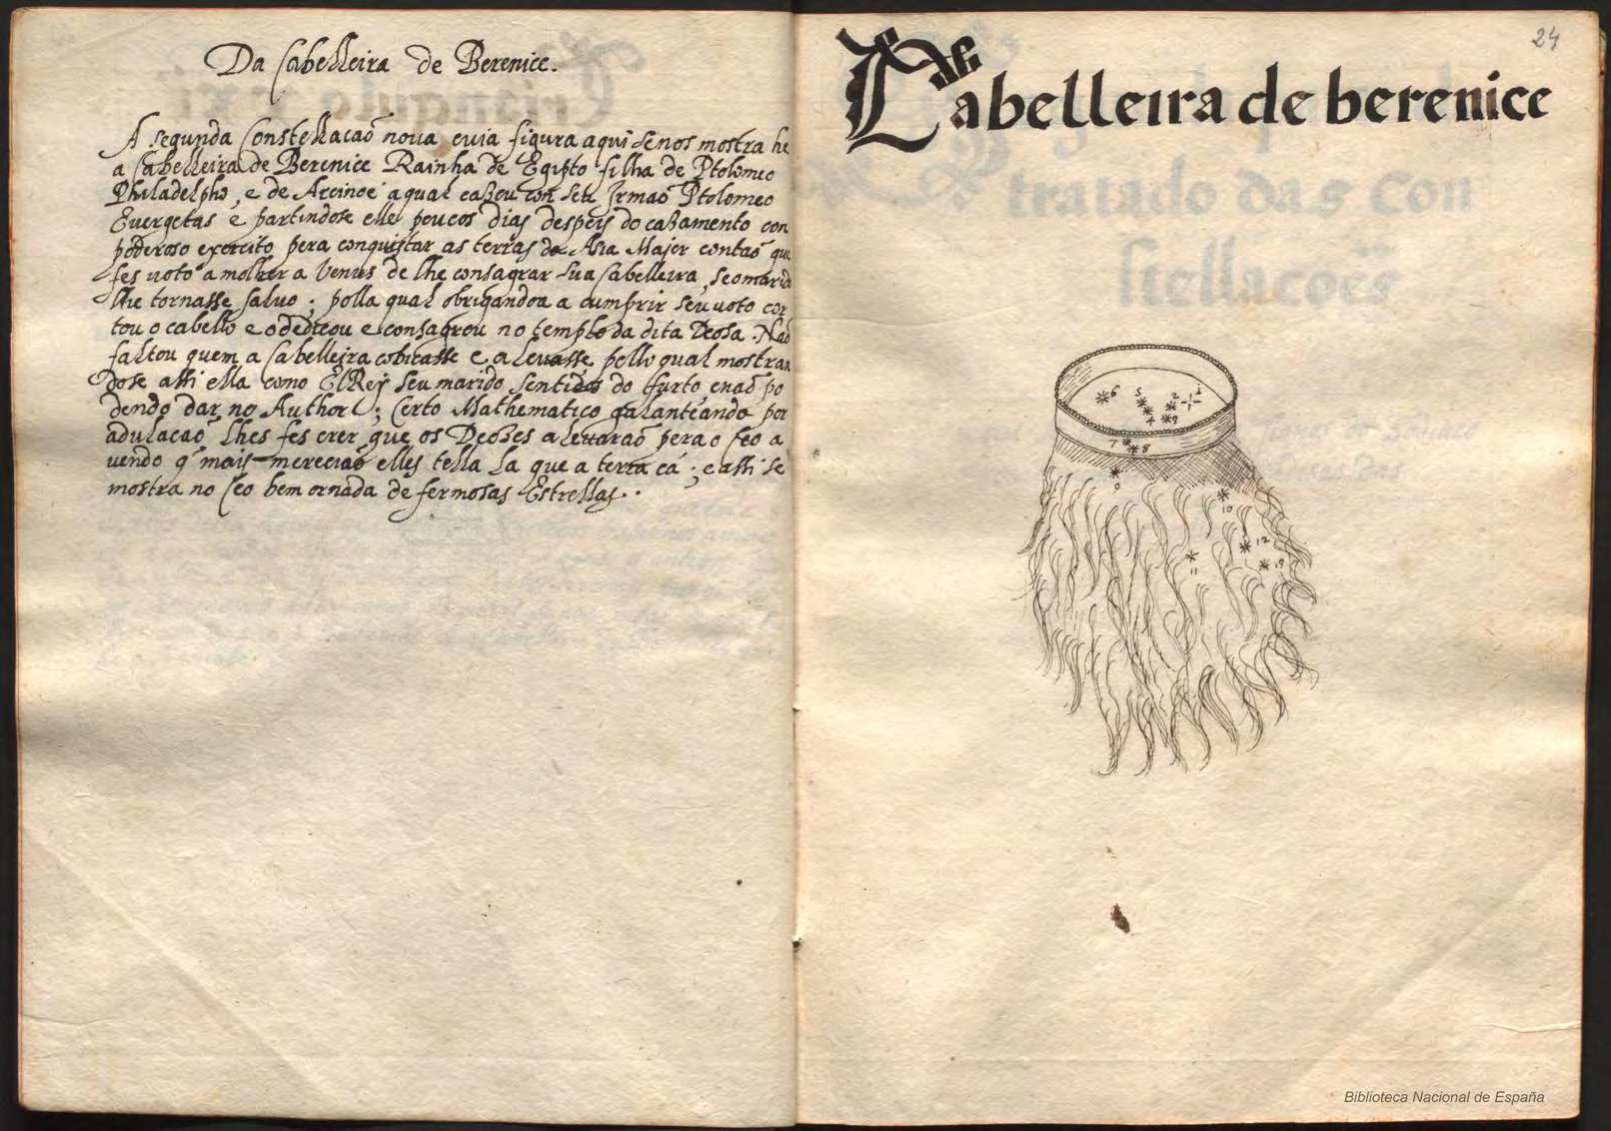 Da Cabelleira de Berenice.
A segunda Constellacaõ noua cuia figura aqui se nos mostra he
a Cabelleira de Berenice Rainha de Egipto filha de Ptolomeo
Philadelpho, e de Arcinoe aqual cazou con seu Irmaõ Ptolomeo
Euergetas e partindose elle poucos dias despeis do cazamento con
poderoso exercito pera conquistar as terras da Asia Major contaõ que
fes uoto a molher a Venus de lhe consagrar sua Cabelleira, se o marido
lhe tornasse saluo; polla qual obrigandoa a cumprir seu uoto cor
tou o cabello e o dedicou e consagrou no templo da dita Deosa. Naõ
faltou quem a Cabelleira cobicasse e a leuasse, pello qual mostran
dose assi ella como ElRey seu marido sentidos do furto, e naõ po
dendo dar no Author; Certo Mathematico galanteando por
adulacaõ lhes fes crer que os Deoses a leuaraõ pera o Ceo a
uendo q̃ mais mereciaõ elles tella la que a terra cá; e assi se
mostra no Ceo bem ornada de fermosas Estrellas.
24
Da
Cabelleira de berenice
6 5 2 1
4 3
7 8
9
10
12
11 13
Biblioteca Nacional de España